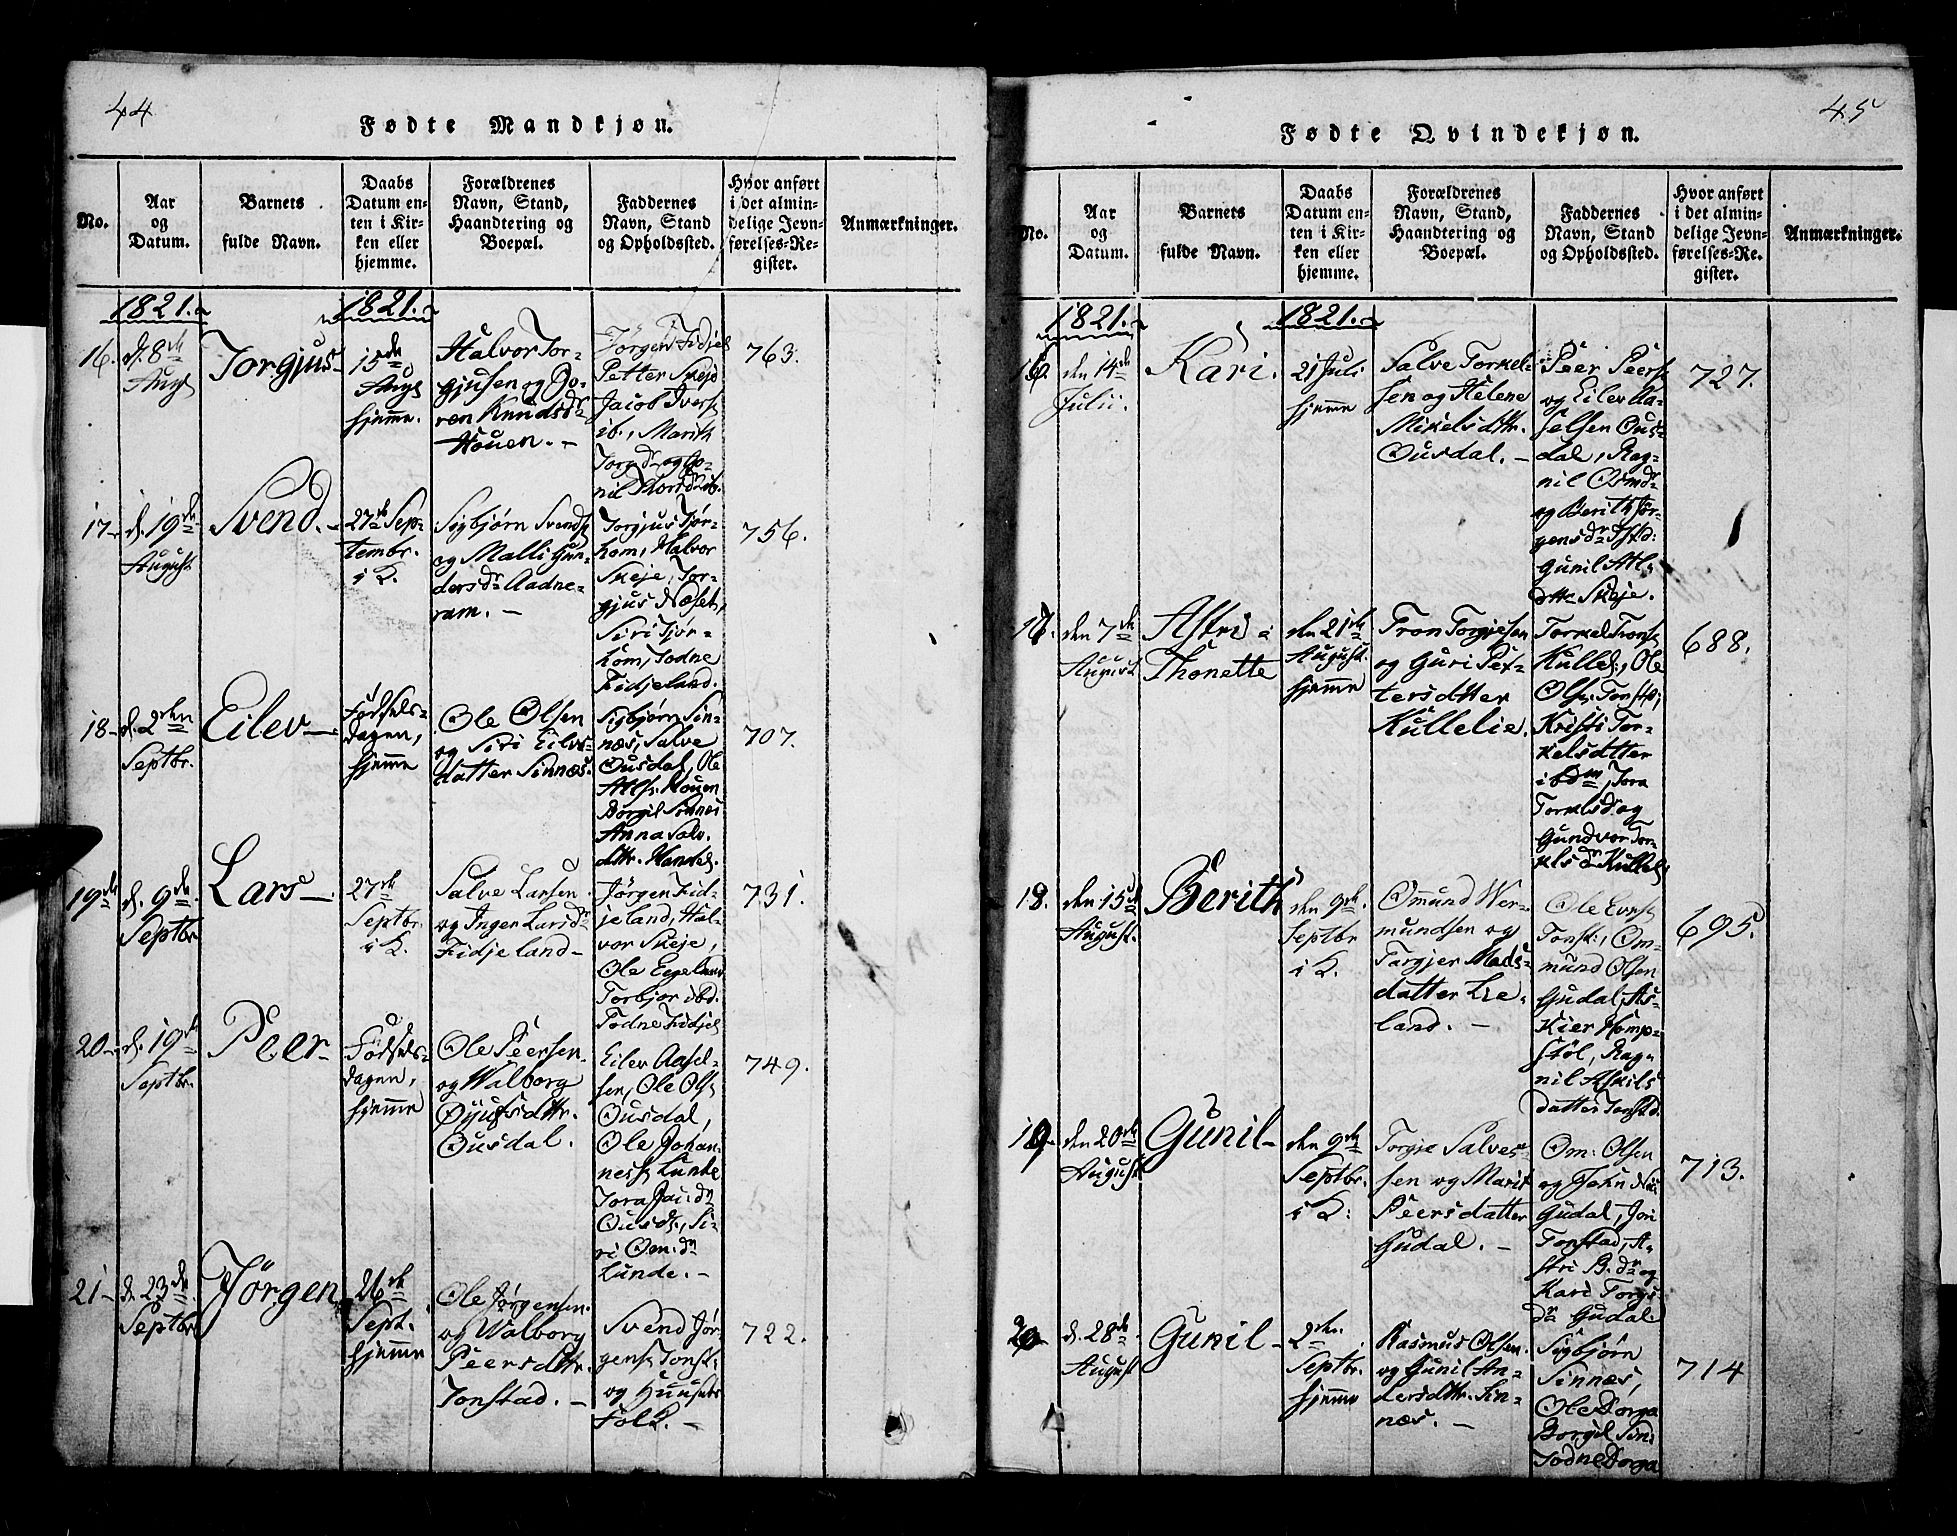 44
Fødte Mandkjøn.
No.
Aar
og
Datum.
Barnets
fulde Navn.
Daabs
Datum en-
ten i Kir-
ken eller
hjemme.
Forældrenes
Navn, Stand,
Haandtering og
Boepæl.
Faddernes
Navn, Stand
og Opholdssted.
Hvor anført
i det almin-
delige Jevn-
førelses-Re-
gister.
Anmærkninger.
1821.
1821.
16.
d. 8de
Aug
Torgjus
15de
Aug
hjemme.
Halvor Tor-
gjusen og Go-
ren Knudsdr
Houen. -
Jörgen Fidjel
Petter Skejd
Jacob Ivers
ib., Marith
763.
17
d. 19de
August
Svend.
27de Sep-
tembr.
i K.
Sigbjørn Svends
og Malli Gun-
dersdr Aadne-
ram. -
Torgjus Tjør-
hom, Halvor
Skeje, Tor-
gjus Næset,
Siri Tjør-
hom, Todne
Fidjeland.
756.
18
d. 2den
Septbr.
Eilev
Födsels-
dagen,
hjemme
Ole Olsen
og Siri Eilevs-
datter Sinnæs.
Sigbjørn Sin-
næs, Salve
Ousdal, Ole
Atls. Houen
Borgil Sinnes
Anna Salv.
dttr. Handel.
707.
19de
d. 9de
Septbr
Lars
27de
Septbr.
i K.
Salve Larsen
og Inger Larsdr
Fidjeland
Jørgen Fid-
jeland, Hal-
vor Skeje,
Ole Egeland
Torbjor ibd.
Todne Fidjel
731.
20
d. 19de
Septbr.
Peer
Födsels-
dagen,
hjemme
Ole Peersen
og Walborg
Øjufsdttr.
Ousdal.
Eilev Aasel-
sen, Ole Ols
Ousdal,
Ole Johan-
nes Lunde
Ousd., Si-
ri Om.dr
Lunde. -
749.
21
d. 23de
Septbr
Jörgen
26de
Sept.
hjemme
Ole Jørgensen
og Walborg
Peersdttr.
Tonstad. -
Svend Jør-
gens. Tonst.
og Huusets
Folk. -
722.
45
Fødte Qvindekjøn.
No.
Aar
og
Datum.
Barnets
fulde Navn.
Daabs
Datum en-
ten i Kir-
ken eller
hjemme.
Forældrenes
Navn, Stand,
Haandtering og
Boepæl.
Faddernes
Navn, Stand
og Opholdssted.
Hvor anført
i det almin-
delige Jevn-
førelses-Re-
gister.
Anmærkninger.
1821.
1821.
16.
den 14de
Julii.
Kari.
21 Juli
hjemme
Salve Torkel-
sen og Helene
Mikelsdttr.
Ousdal. -
Peer Peers
og Eilev Aa-
selsen Ous-
dal, Rag-
nil Osmdr
og Berith Jør-
gensdr Istd:
Gunil Atl-
dttr Skeje.
727.
17.
den 7de
August
Astri
Thonette
den 21de
August.
hjemme
Tron Torgjesen
og Guri Pet-
tersdtter
Kullelie.
Torkel Trons
Kullel., Ole
Ols. Tonst.,
Kristi Tor-
kelsdtter
ibdm, Tora
Torkelsd. og
Gundvor Tor-
kls dr Kullel
688.
18.
den 15de
August.
Berith
den 9de.
Septbr
i K.
Omund Wer-
mundsen og
Targjer Mads-
datter Lie-
land. -
Ole Evens
Tonst., Om-
mund Olsen
Gudal, As-
kier Homp-
stöl, Rag-
nil Askils
datter Tonstd.
695.
19
den 20de
August
Gunil
den 9de
Septbr.
i K:
Torgje Salve-
sen og Marit
Peersdatter
Gudal. -
Om: Olsen
og John
Gudal, Jon
Tonstad, A-
stri B. dr og
Kari Torgs
dr Gudal
713.
20
d. 28de
August
Gunil
2den.
Septbr.
hjemme
Rasmus Olsen
og Gunil An-
dersdttr. Sin-
næs. -
Sigbjørn
Sinnæs,
Ole Dorga
Borgil Sin:
Todne Dorga
714